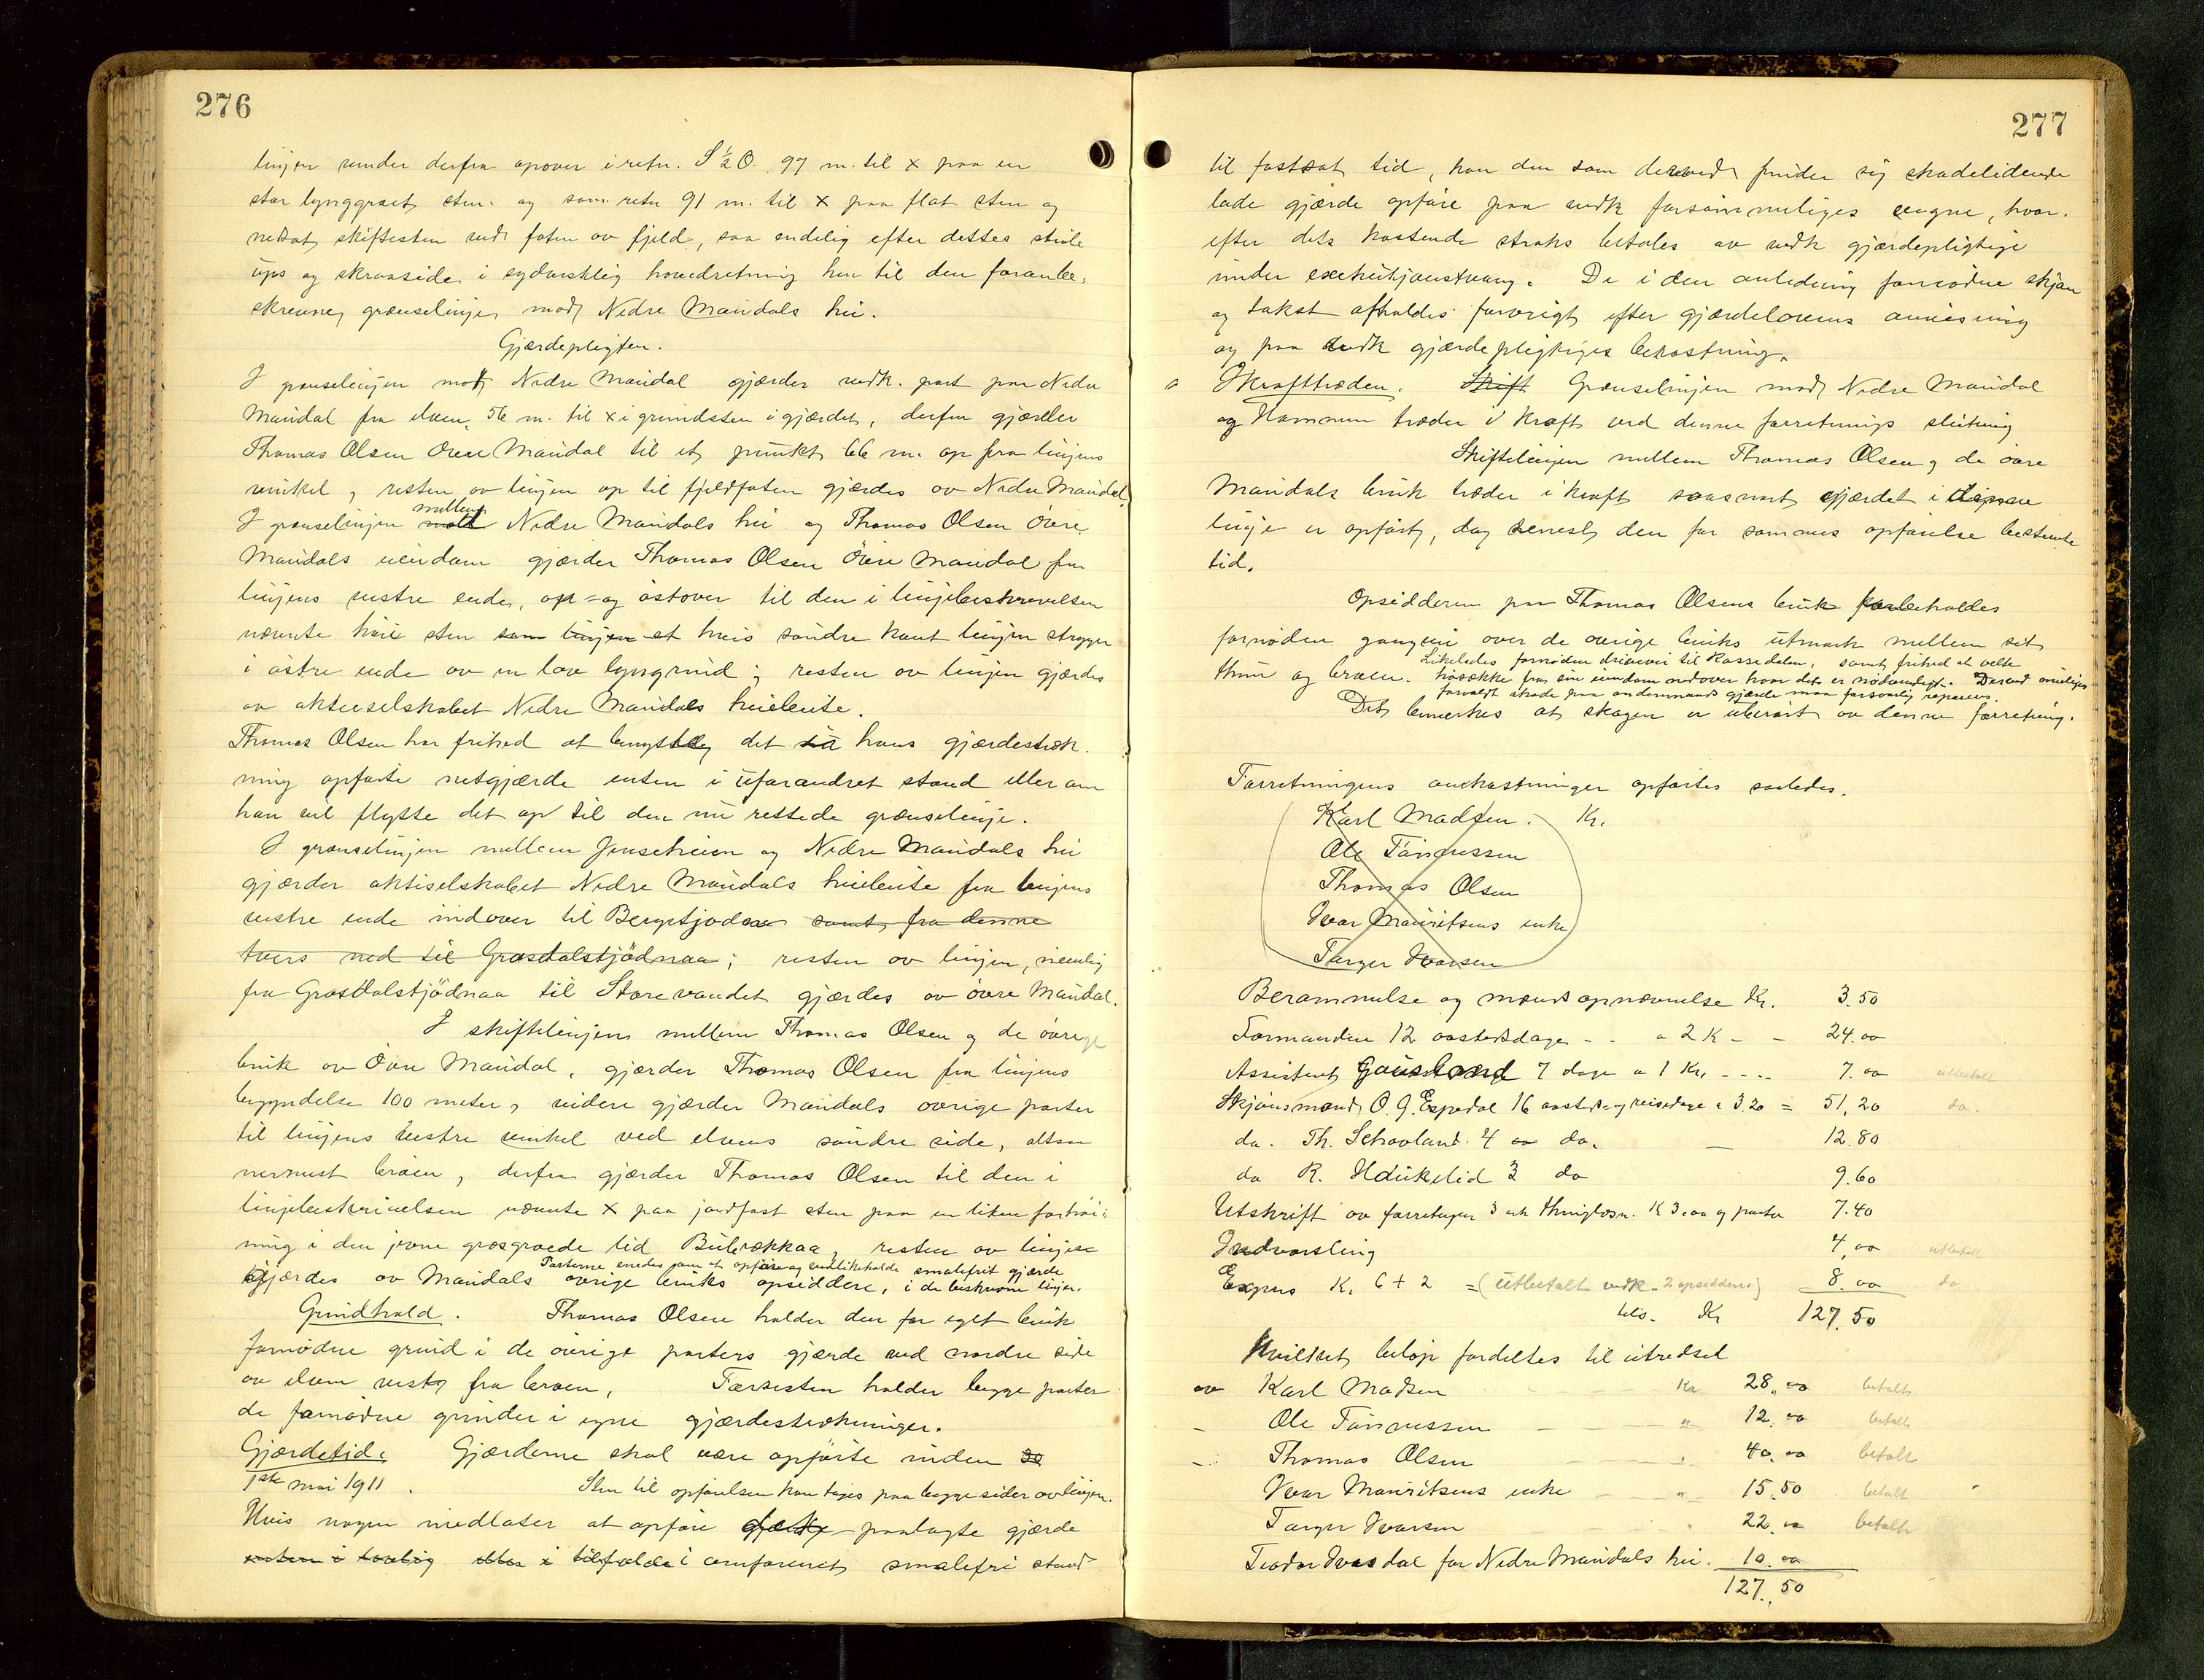 276
linjen vender derfra opover i retn. S ½ O. 97 m. til x paa en
stor lynggroet sten og sam. retn 91 m. til x paa flat sten og
nedsat skiftesten ved foten av fjeld, saa endelig efter dettes steile
ups og skraaside i sydøstlig hovedretning hen til den foranbe-
skrevne grænselinje mod Nedre Maudals hei.
Gjærdepligten.
I grænselinjen mot Nedre Maudal gjærder vedk. part paa Nedre
Maudal fra elven, 56 m. til x i grundsten i gjærdet, derfra gjærder
Thomas Olsen Övre Maudal til et punkt 66 m. op fra linjens
vinkel, resten av linjen op til fjeldfoten gjærdes av Nedre Maudal.
mellem
I grænselinjen mod Nedre Maudals hei og Thomas Olsen Övre
Maudals eiendom gjærder Thomas Olsen Övre Maudal fra
linjens vestre ende, op- og østover til den i linjebeskrivelsen
nævnte høie sten som linjen et hvis søndre kant linjen stryger
i østre ende av en lav lyngrind; resten av linjen gjærdes
av aktieselskabet Nedre Maudals heibeite.
Thomas Olsen har frihed at benytte det paa hans gjærdestræk-
ning opførte netgjærde enten i uforandret stand eller om
han vil flytte det op til den nu rettede grænselinje.
I grænselinjen mellem Jenseheien og Nedre Maudals hei
gjærder aktieselskabet Nedre Maudals heibeite fra linjens
vestre ende indover til Bergetjødna samt fra denne
tvers ned til Grasdalstjödnaa; resten av linjen, nemlig
fra Grasdalstjödnaa til Storevandet gjærdes av övre Maudal.
I skiftelinjen mellem Thomas Olsen og de övrige
bruk av Övre Maudal, gjærder Thomas Olsen fra linjens
begyndelse 100 meter, videre gjærder Maudals øvrige parter
til linjens vestre vinkel ved elvens søndre side, altsaa
nærmest broen, derfra gjærder Thomas Olsen til den i
linjebeskrivelsen nævnte x paa jordfast sten paa en liten forhøi-
ning i den jevne græsgroede lid Bulrækkaa, resten av linjen
Parterne enedes om at opføre og vedlikeholde smalefrit gjærde
gjærdes av Maudals øvrige bruks opsiddere, i de beskrevne linjer.
Grindhold. Thomas Olsen holder den for eget bruk
fornødne grind i de øvrige parters gjærde ved nordre side
av elven vestg fra broen, Forresten holder begge parter
de fornødne grinder i egne gjærdestrækninger.
Gjærdetid. Gjærderne skal være opførte inden 20
1ste mai 1911. Sten til opførelsen kan tages paa begge sider av linjen.
Hvis nogen undlater at opføre paalagte gjærde
enten i lovlig eller i tilfælde i omforenet smalefri stand
277
til fastsat tid, kan den som derved finder sig skadelidende
lade gjærde opføre paa vedk forsømmeliges vegne, hvor-
efter dets kostende straks betales av vedk gjærdepligtige
under exekutionstvang. De i den anledning fornødne skjøn
og takst afholdes forøvrigt efter gjærdelovens anvisning
og paa vedk gjærdepligtiges bekostning.
Ikrafttræden. Skift Grænselinjen mod Nedre Maudal
og Hammern træder i kraft ved denne forretnings slutning
Skiftelinjen mellem Thomas Olsen og de øvre
Maudals bruk træder i kraft saasnart gjærdet i disse
linje er opført, dog senest den for sammes opførelse bestemte
tid.
Opsidderen paa Thomas Olsens bruk forbeholdes
fornøden gangvei over de øvrige bruks utmark mellem sit
Likeledes fornøden drivevei til Kossedalen, samt frihed at velte
thun og broen. høsække fra sin eiendom nedover hvor det er nødvendigt. Derved muligens
forvoldt skade paa andenmands gjærde maa forsvarlig repareres.
Det bemerkes at skogen er uberørt av denne forretning.
Forretningens omkostninger opførtes saaledes.
Karl Madsen. Kr.
Ole Tönnessen
Thomas Olsen
Ivar Mauritsens enke
Torger Ivarsen
Berammelse og mænds opnævnelse Kr. 3.50
Formanden 12 aastedsdage - - a 2 K - - 24.00
Assistent Gausland 7 dage a 1 Kr. - - - 7.00 utbetalt
Skjønsmand O. G. Espedal 16 aasteds- og reisedage a 3.20 = 51,20 do.
do. Th. Schovland. 4 do. — 12.80
do R. Haukelid 3 do 9.60
Utskrift av forretningen 3 ark thinglæsn. K 3.00 og porto 7.40
Indvarsling 4,00 utbetalt
Expres K. 6 + 2 = (utbetalt vedk. 2 opsiddere) 8.00 do
tils. Kr 127.50
Hvilket beløp fordeltes til utredsel
av Karl Madsen Kr 28.00 betalt
- Ole Tönnessen — " 12.00 betalt
- Thomas Olsen — " 40.00 betalt
Ivar Mauritsens enke — " 15.50 betalt
Torger Ivarsen " 22.00 betalt
Teodor Ivesdal for Nedre Maudals hei. 10.00
127.50